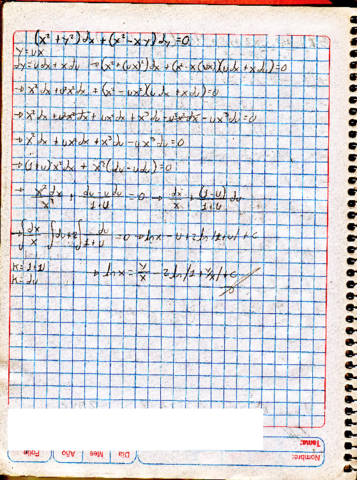 (x² + y²) dx + (x² - xy) dy = 0
y = ux
dy = u dx + x du → (x² + (ux)²) dx + (x² - x(ux))(u dx + x du) = 0
→ x² dx + u²x² dx + (x² - ux²)(u dx + x du) = 0
→ x² dx + u²x² dx + ux² dx + x³ du - u²x² dx - ux³ du = 0
→ x² dx + ux² dx + x³ du - ux³ du = 0
→ (1+u)x² dx + x³ (du - u du) = 0
→ x² dx / x³ + (du - u du) / (1+u) = 0 → dx/x + (1-u)/(1+u) du
→ ∫ dx/x ∫ du + 2 ∫ du/(1+u) = 0 → ln x - u + 2 ln |1+u| + c
k = 1+u
k = du → ln x = y/x - 2 ln |1 + y/x| + c
Nombre:
Tema:
Día Mes Año Folio